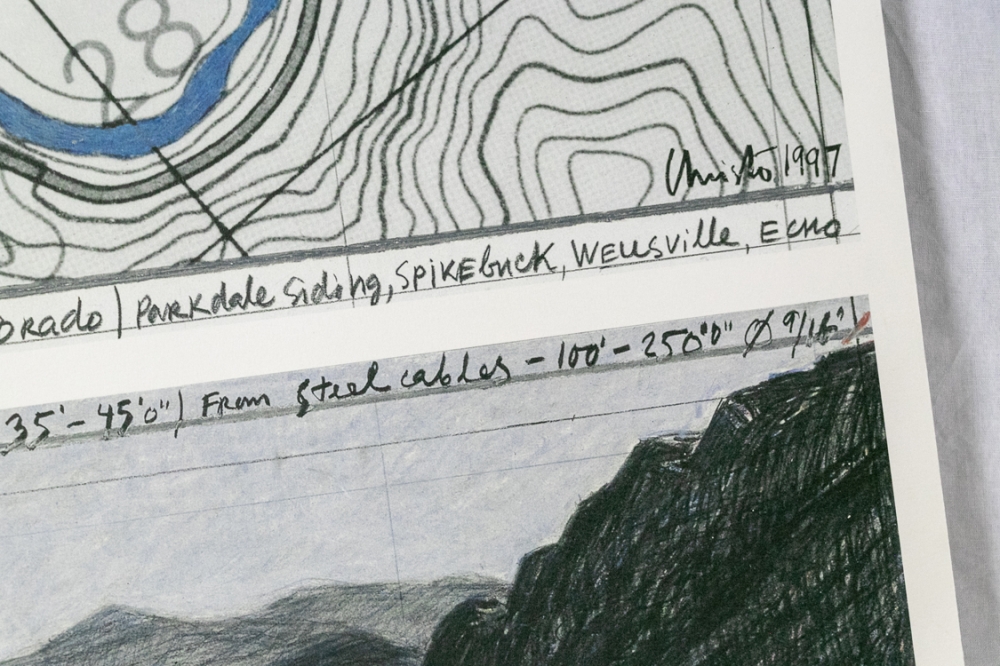 28
Christo 1997
ORADO | PARKdale Siding, SPIKEbuck, WELLSVIlle, ECHO
35' - 45'0") From Steel cables - 100' - 250'0" Ø 9/16"